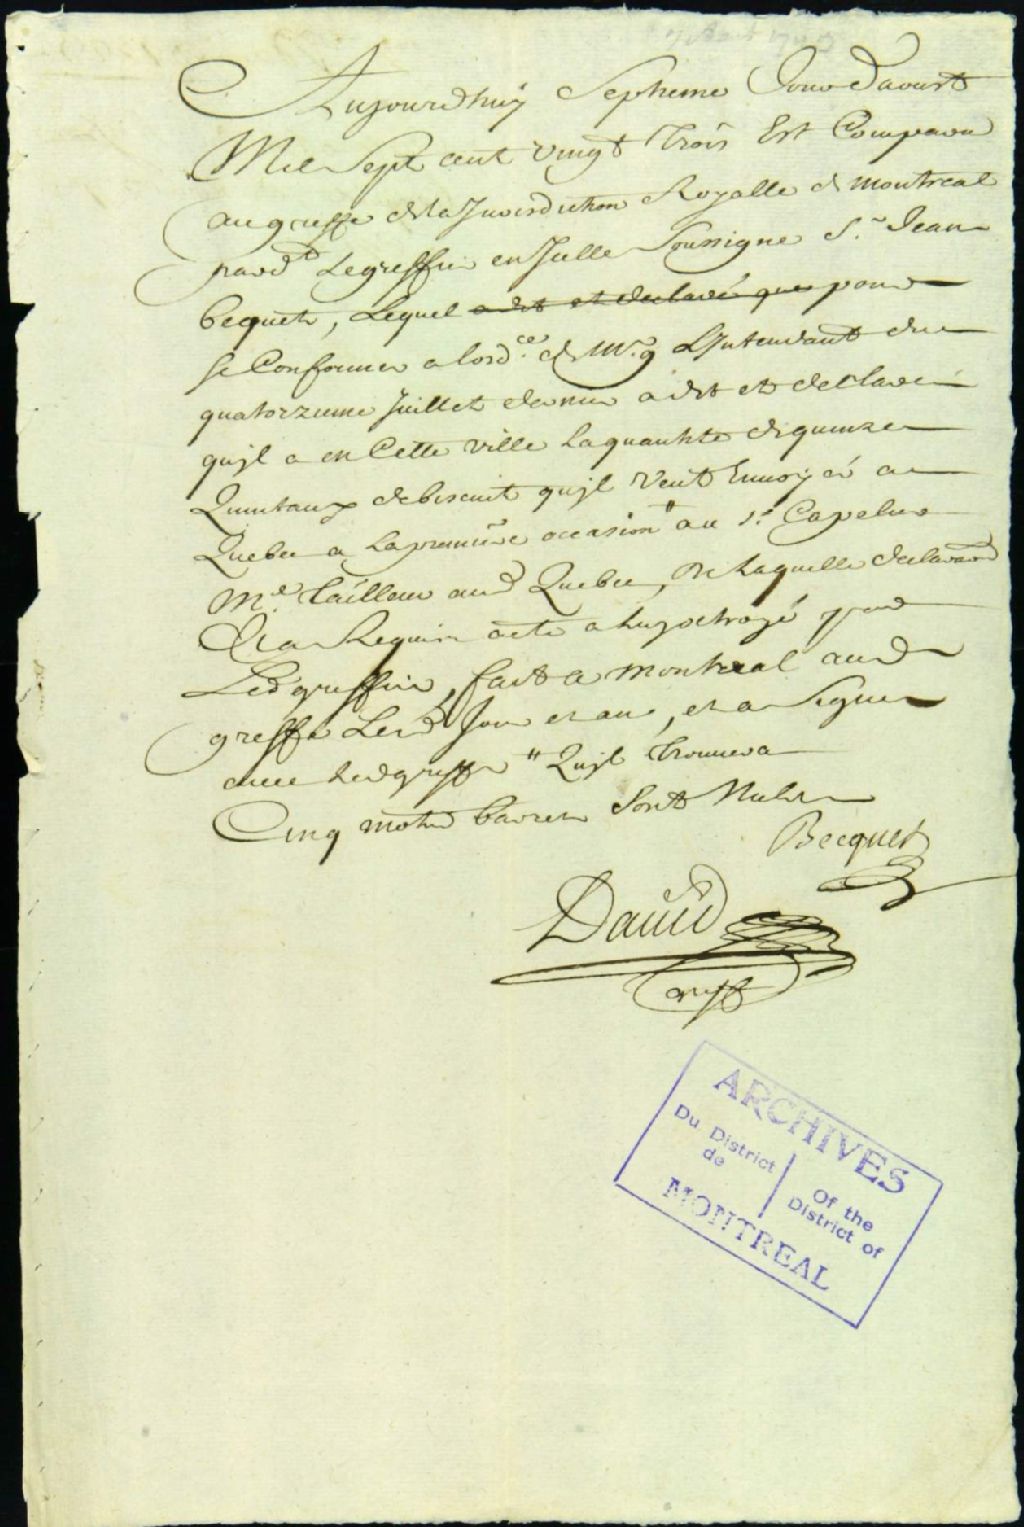 Aujourdhuy Septieme Jour daoust
Mil Sept cent vingt trois Est Comparu
au greffe de la Jurisdiction Royalle de montreal
pard.t Le greffier en Icelle Soussigné S.r Jean
becquet, Lequel a dit et declaré que pour
se Conformer a lord.ce de M.g L'Intendant du
quatorzieme Juillet dernier a dit et declaré
qu'jl a en Cette ville La quantité de quinze
Quintaux de biscuit qu'jl veut Envoyer a
Quebec a La premiere occasion" au S.r Capelier
M.d Tailleur aud Quebec, De Laquelle declaraon
Il a Requis acte a luy octroyé par
Led greffier, fait a Montreal aud
greffe Lesd Jour et an, et a Signé
avec Led greffier " Qu'jl trouvera
Cinq mots barrez Sont Nuls
Becquet
David
greff
ARCHIVES
Du District
de
Of the
District of
MONTREAL